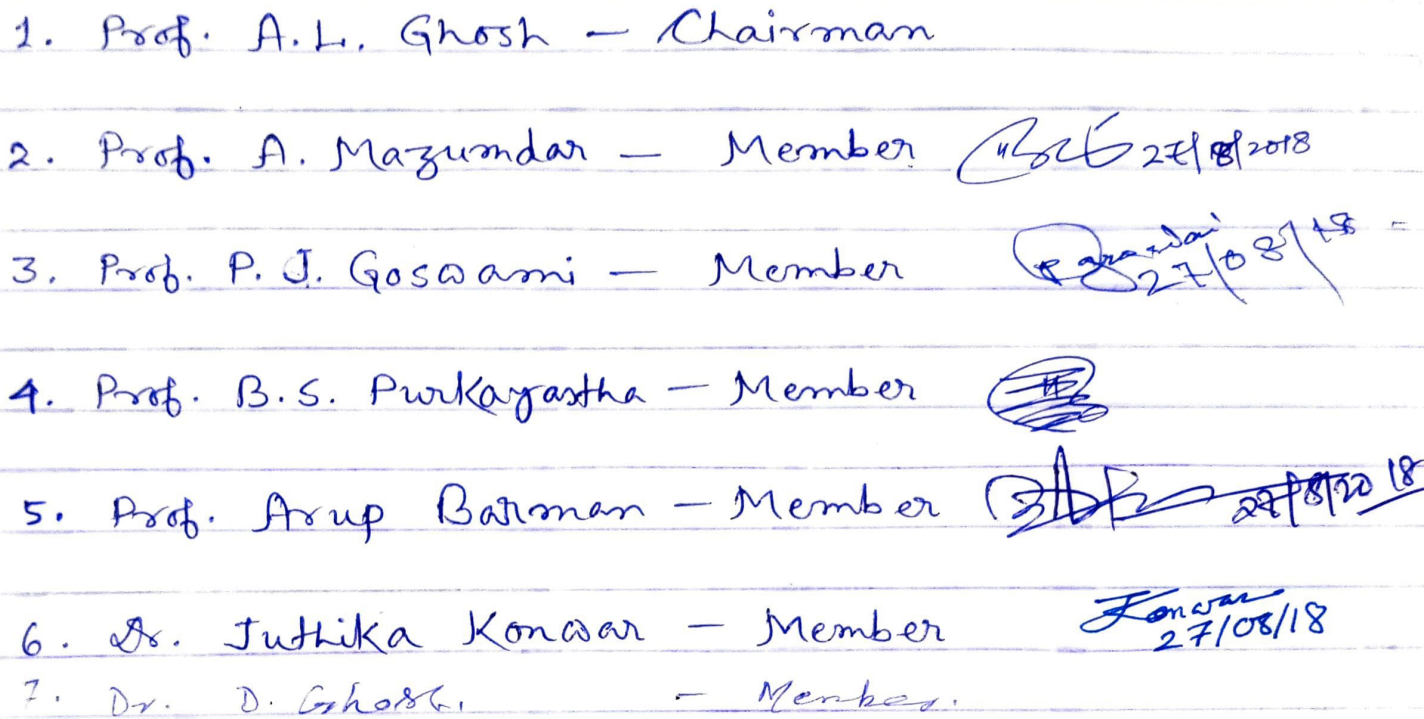 1. Prof. A.L. Ghosh – Chairman
2. Prof. A. Mazumdar – Member 27/8/2018
3. Prof. P. J. Goswami – Member 27/08/18
4. Prof. B.S. Purkayastha – Member
5. Prof. Arup Barman – Member 27/8/2018
6. Dr. Juthika Konwar – Member Konwar 27/08/18
7. Dr. D. Ghosh. – Member.